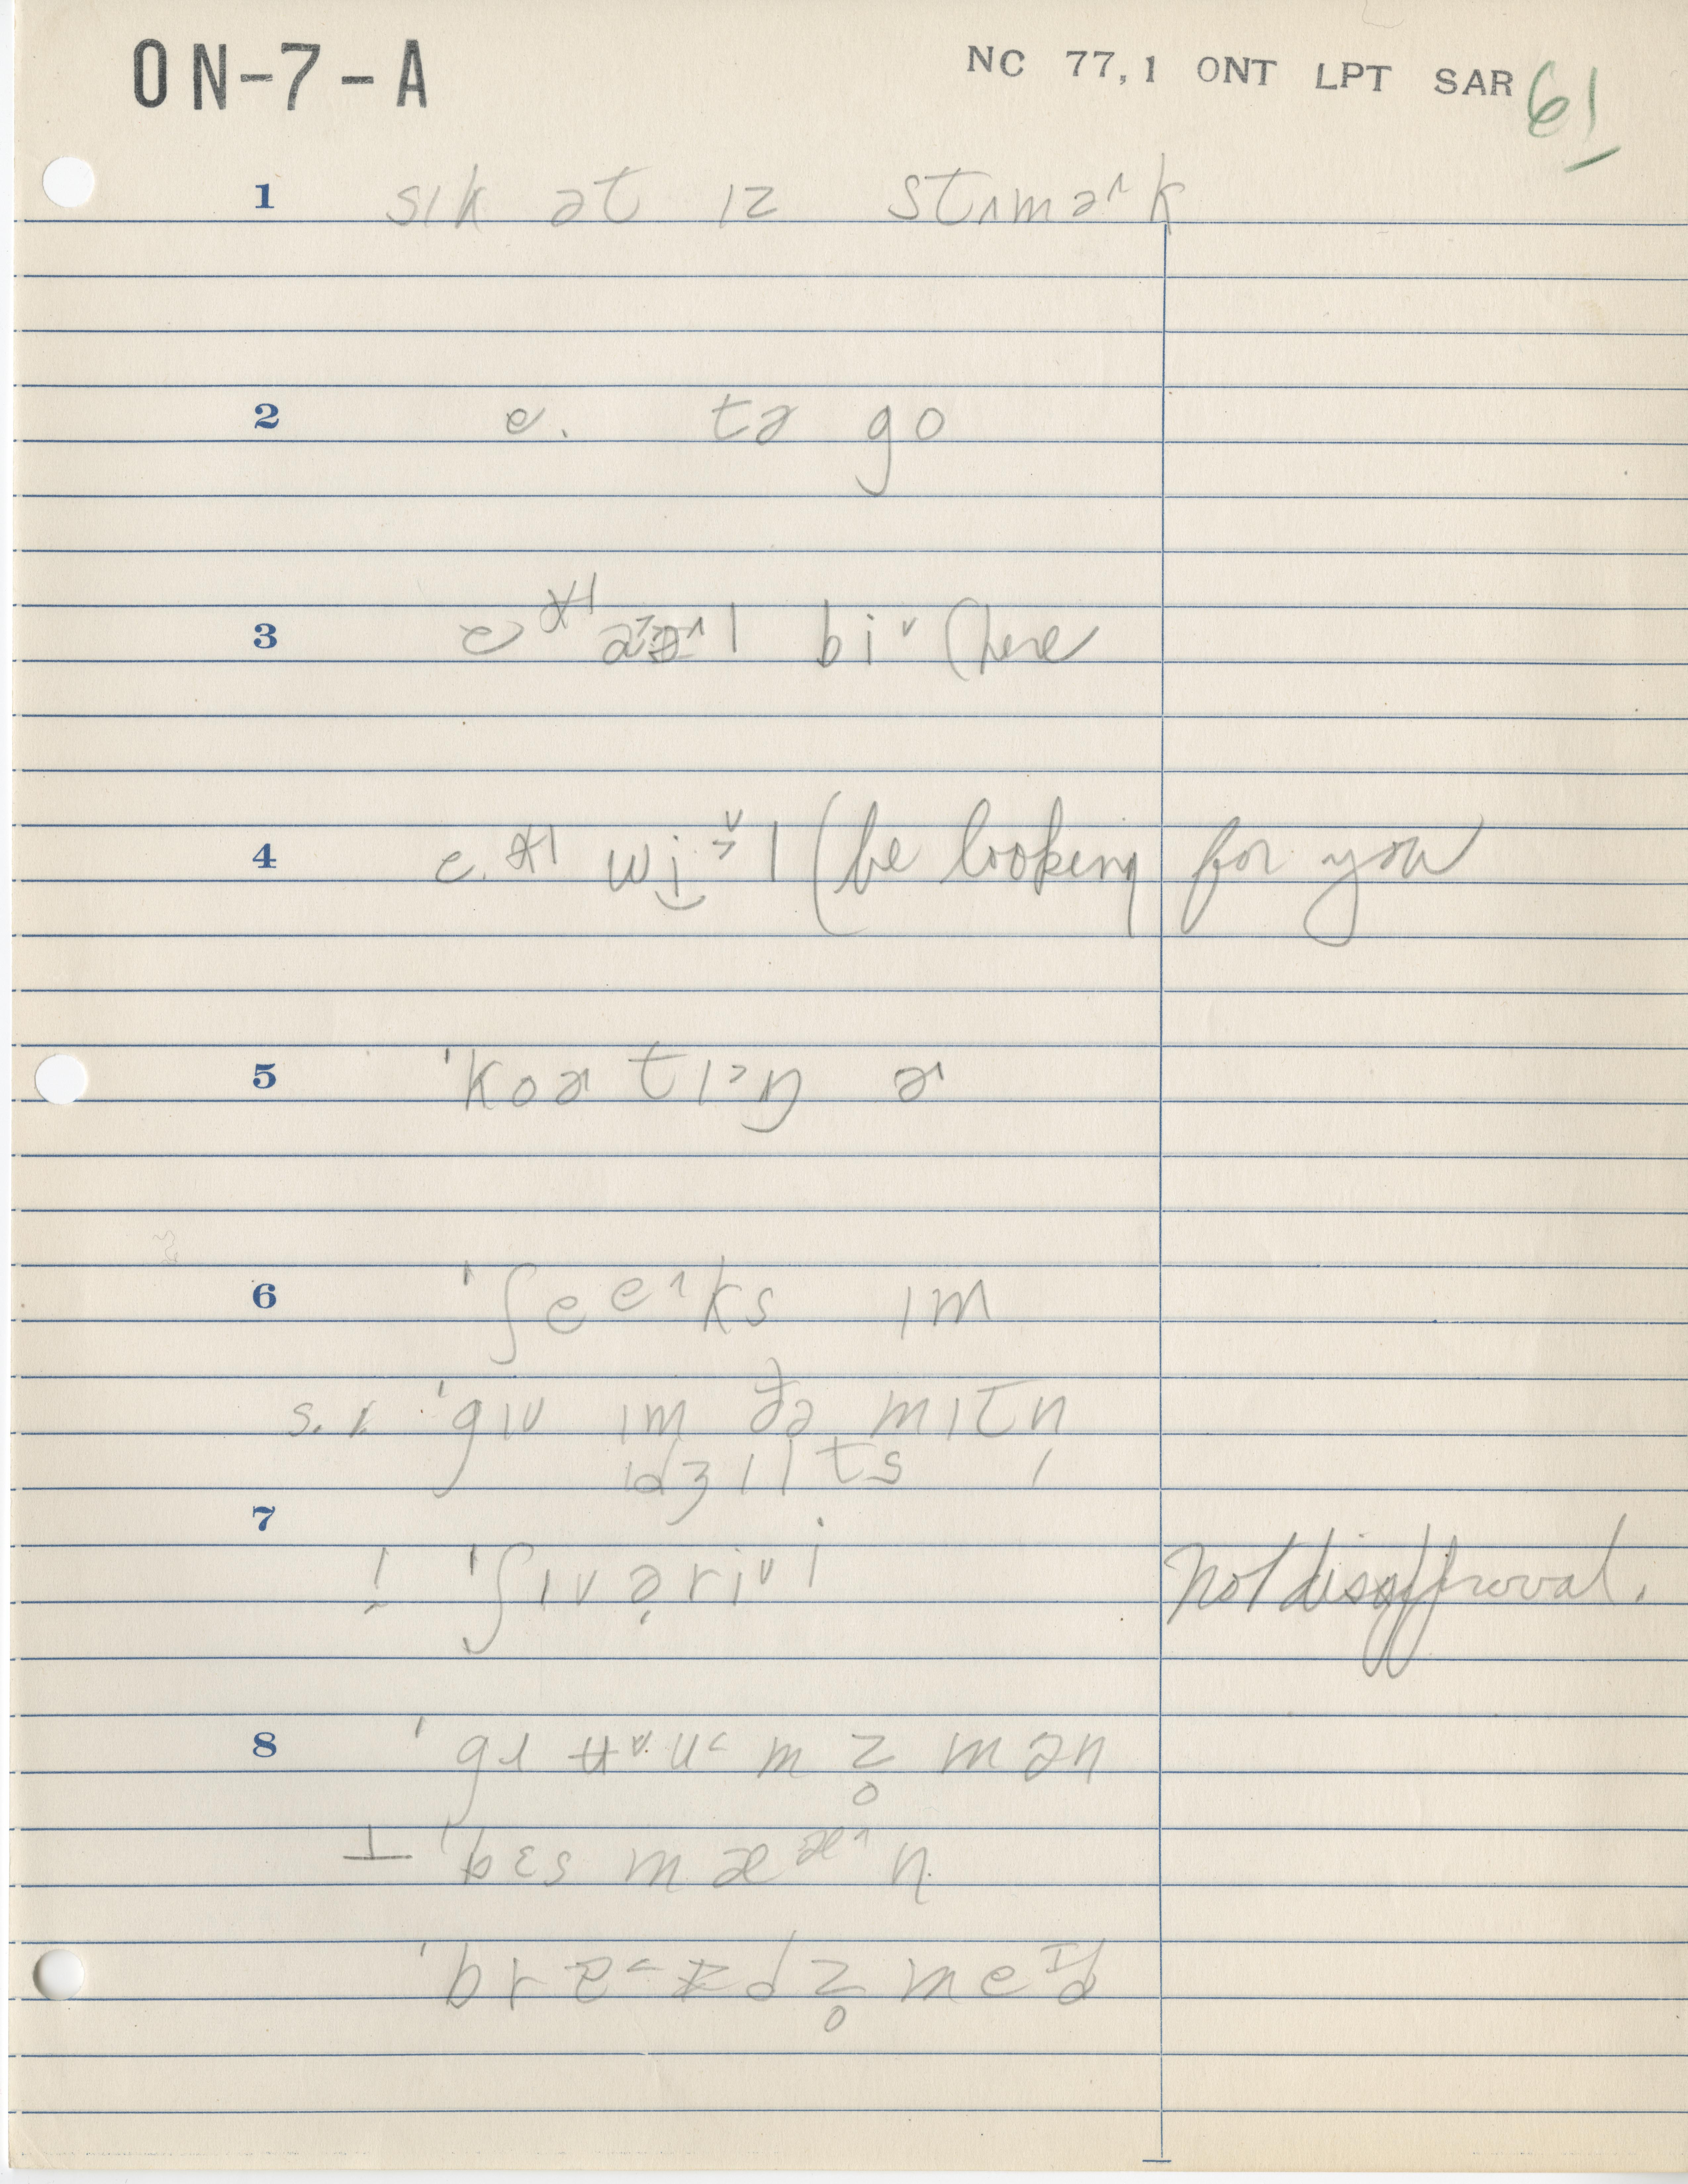 ON-7-A NC 77,1 ONT LPT SAR 61
1 sɪk ət ɪz stʌmək
2 e. tə go
3 bi˅ (here
4 (be looking for you
5 ˈkoətɪ˃ŋ ə
6 ˈʃeeˈks ɪm
s. ˈgɪv ɪm ðə mɪtn̩
dʒɪlts
7
ˈʃɪvəri˅i not disapproval.
8 m z̥ mən
⊥ ˈbɛs mæn
ˈbr dz̥ meɪd